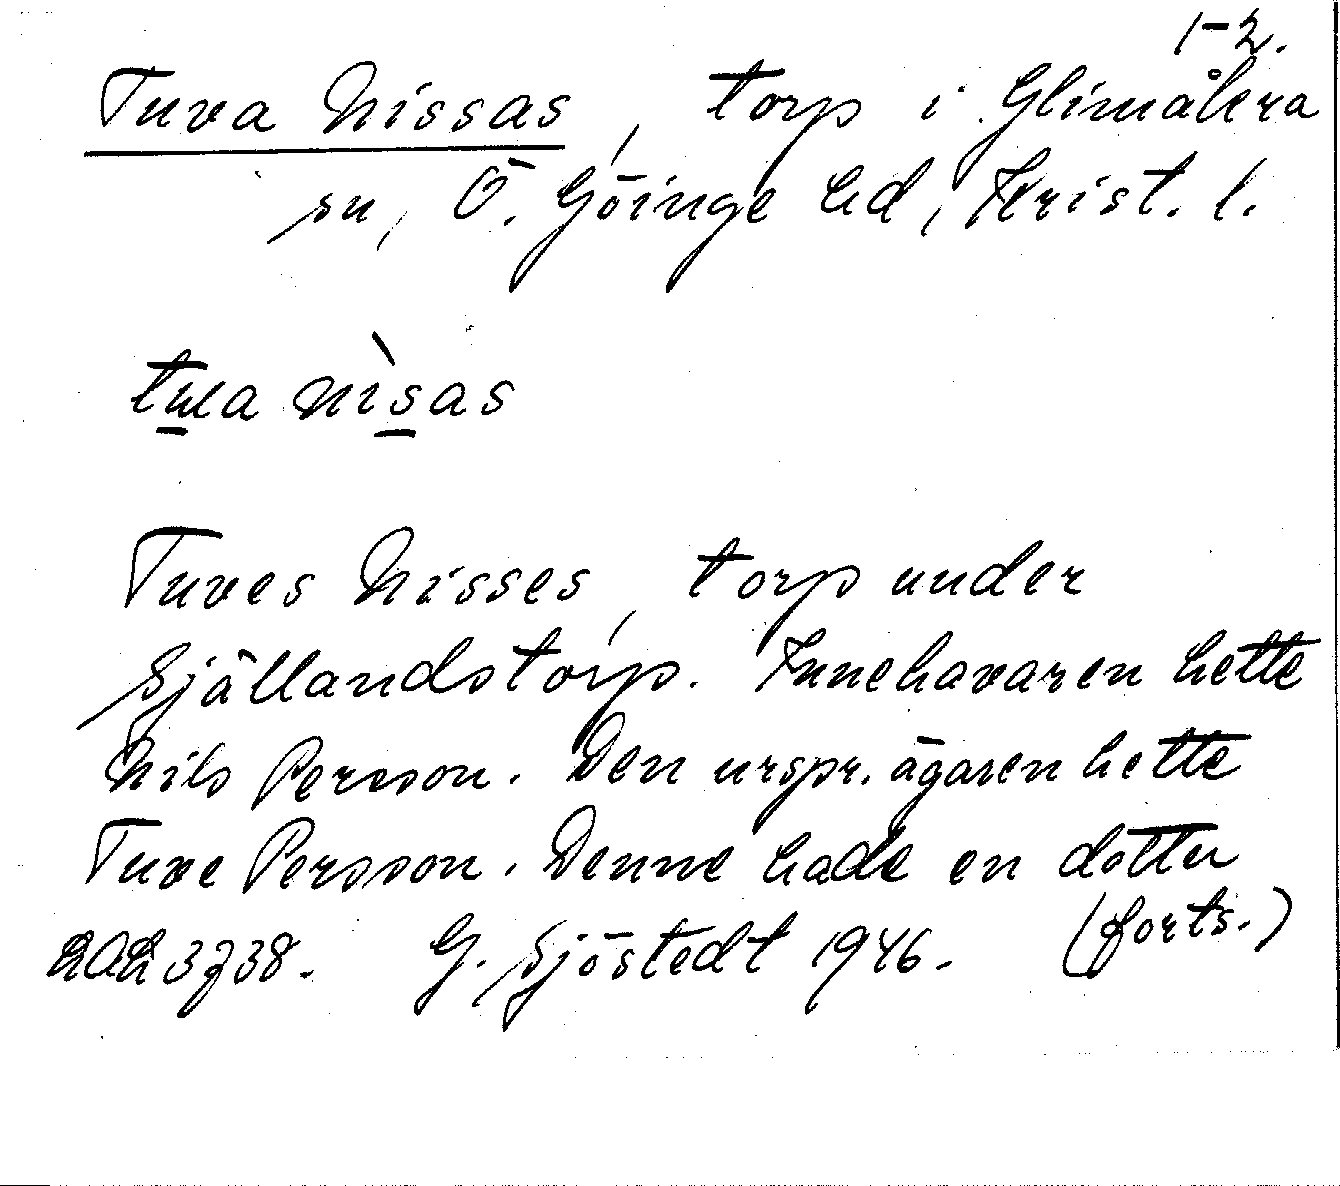 1-2.
Tuva Nissas, torp i Glimåkra
sn, Ö. Göinge hd, Krist. l.
nìsas
Tuves Nisses, torp under
Själlandstorp. Innehavaren hette
Nils Persson. Den urspr. ägaren hette
Tuve Persson. Denne hade en dotter
3738. G. Sjöstedt 1946. (forts.)